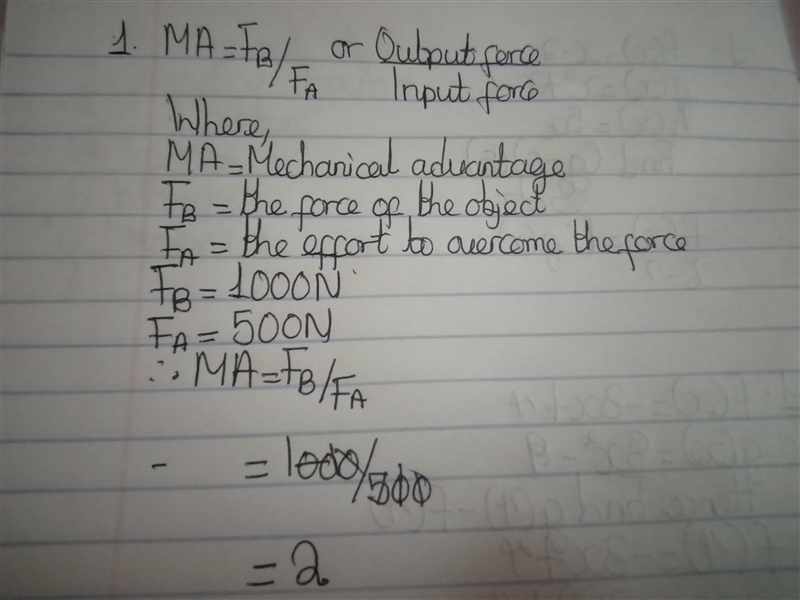 1. MA = FB/FA or Output force
Input force
Where,
MA = Mechanical advantage
FB = the force of the object
FA = the effort to overcome the force
FB = 1000N
FA = 500N
∴ MA = FB/FA
- = 1000/500
= 2